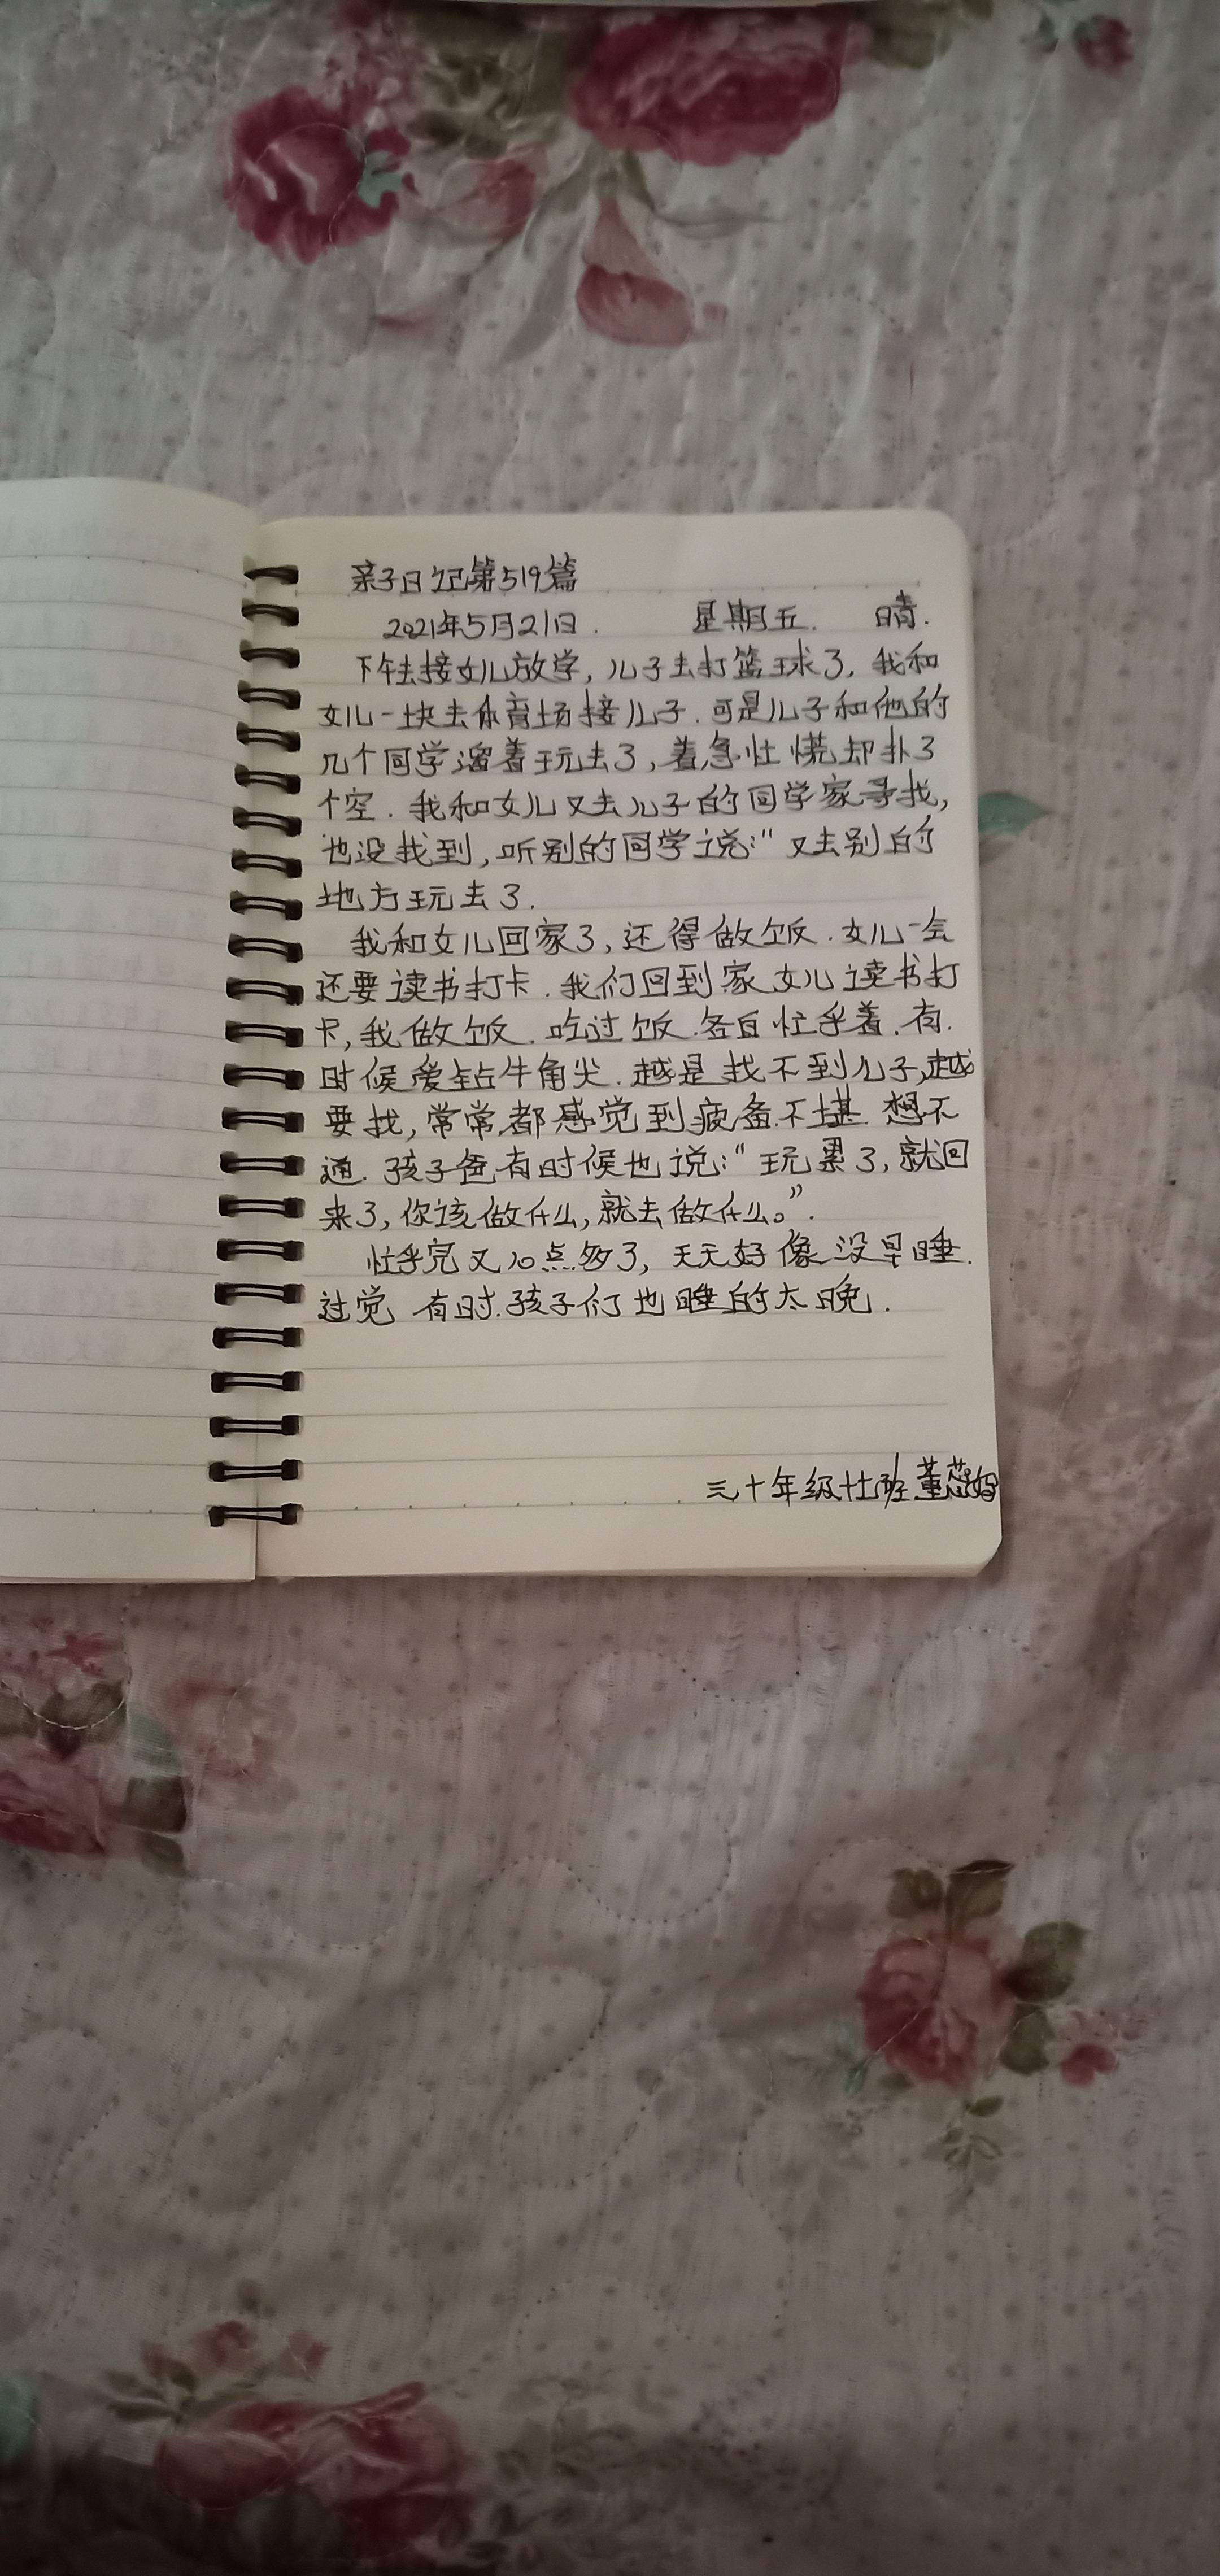 亲子日记第519篇
2021年5月21日. 星期五. 晴.
下午去接女儿放学,儿子去打篮球了,我和
女儿一块去体育场接儿子.可是儿子和他的
几个同学溜着玩去了,着急忙慌却扑了
个空.我和女儿又去儿子的同学家寻找,
也没找到,听别的同学说:“又去别的
地方玩去了.
我和女儿回家了,还得做饭.女儿一会
还要读书打卡.我们回到家女儿读书打
卡,我做饭.吃过饭.各自忙乎着.有.
时候爱钻牛角尖.越是找不到儿子,越
要找,常常都感觉到疲惫不堪.想不
通.孩子爸有时候也说:“玩累了,就回
来了,你该做什么,就去做什么。”.
忙乎完又10点多了,天天好像没早睡.
过觉 有时.孩子们也睡的太晚.
三十年级十七班董